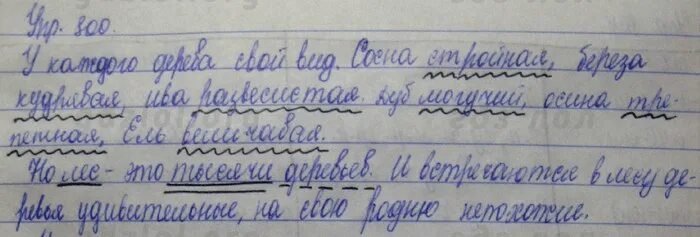 Упр. 300.
У каждого дерева свой вид. Сосна стройная, береза
кудрявая, ива развесистая. Дуб могучий, осина тре-
петная, Ель величавая.
Но лес - это тысячи деревьев. И встречаются в лесу де-
ревья удивительные, на свою родню непохожие.